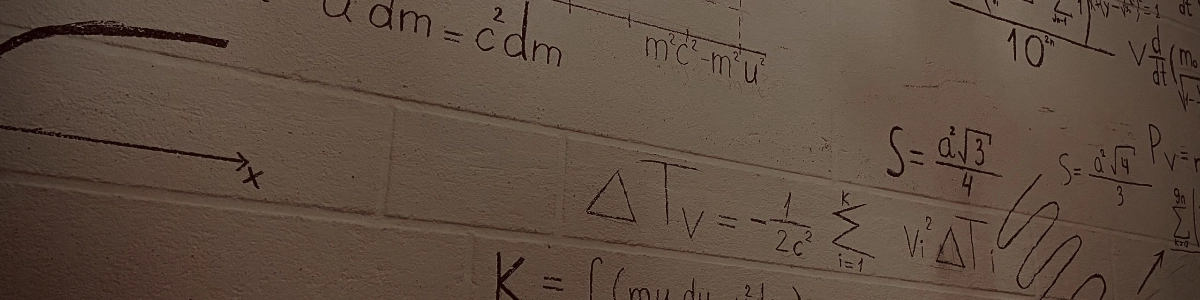 u dm = c² dm
m²c² - m²u²
10²ⁿ
V d/dt (m₀
x
S = a²√3 / 4
S = a²√4 / 3
Pᵥ =
ΔTᵥ = - 1/2c² Σ (i=1, K) vᵢ² ΔTᵢ
K = ∫ (mu du